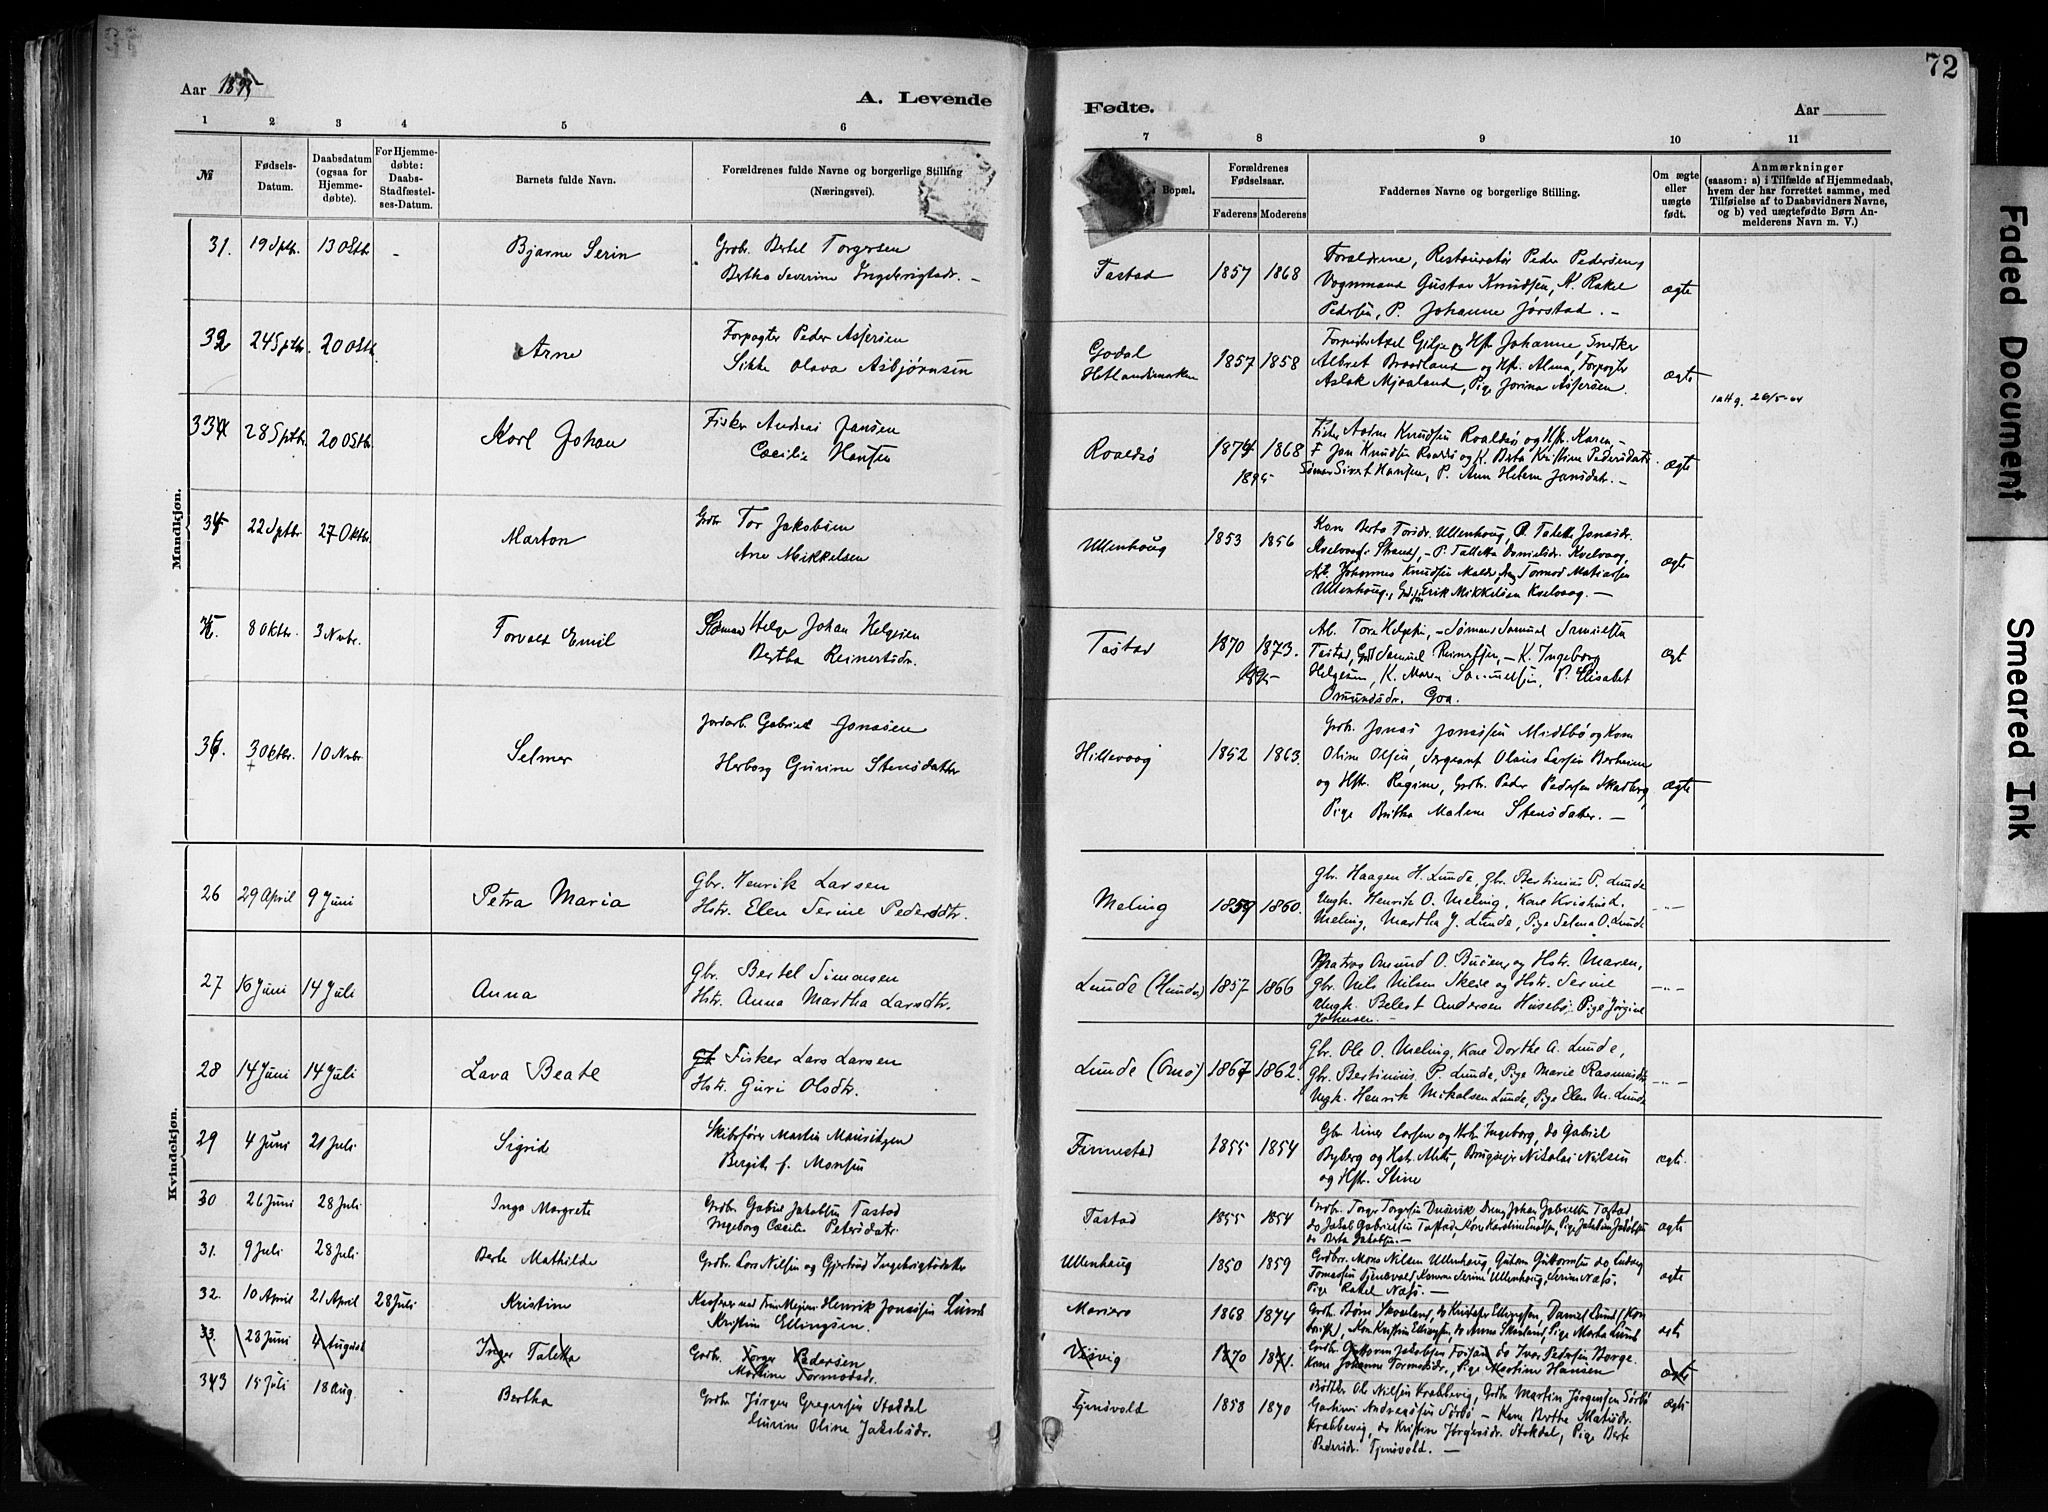 72
Aar 1895
A. Levende
Fødte.
Aar
1 2 3 4 5 6 7 8 9 10 11
№
Fødsels-
Datum.
Daabsdatum
(ogsaa for
Hjemme-
døbte).
For Hjemme-
døbte:
Daabs-
Stadfæstel-
ses-Datum.
Barnets fulde Navn.
Forældrenes fulde Navne og borgerlige Stilling
(Næringsvei).
Bopæl.
Forældrenes
Fødselsaar.
Faderens Moderens
Faddernes Navne og borgerlige Stilling.
Om ægte
eller
uægte
født.
Anmærkninger
(saasom: a) i Tilfælde af Hjemmedaab,
hvem der har forrettet samme, med
Tilføielse af to Daabsvidners Navne,
og b) ved uægtefødte Børn An-
melderens Navn m. V.)
Mandkjøn.
31. 19 Sptbr. 13 Oktb - Bjarne Serin
Grdbr. Bertel Torgersen
Bertha Severine Ingebrigtsdr. -
Tastad 1857 1868
Forældrene, Restauratør Peder Pedersen,
Vognmand Gustav Knudsen, K. Rakel
Pedersen, P. Johanne Jørstad. -
ægte
32 24 Sptbr. 20 Oktb. Arne
Forpagter Peder Aspersen
Sikke Olava Asbjørnsen
Godal
Hetlandsmarken
1857 1858
Forpagter Axel Gilje og Hst. Johanne, Snedker
Albret Braadland og Hst. Alma, Forpagter
Aslak Mjaaland, Pige Jorina Aspersen.
ægte
iattg. 26/5-44
33 28 Sptbr 20 Oktb Karl Johan
Fisker Andreas Jansen
Cecilie Hansen
Roaldsø 1874 1868
1895
Fisker Aadne Knudsen Roaldsø og Hst. Karen, -
F Jon Knudsen Roaldsø og K. Berta Kristine Pedersdatr
Sømand Sivert Hansen, P. Ane Helene Jansdatr. -
ægte
34 22 Sptbr 27 Oktbr. Marton
Grdbr Tor Jakobsen
Ane Mikkelsen
Ullenhoug 1853 1856
Kone Berta Torsdr. Ullenhoug, P. Talette Jonasdr.
Kvelvaag, Strand, - P. Talletta Danielsdr. Kvelvaag,
Arb. Johannes Knudsen Malde, Ung Tormod Matiassen
Ullenhoug, Erik Mikkelsen Kvelvaag. -
ægte
35. 8 Oktbr. 3 Nvbr. Torvald Emil
Sømand Helge Johan Helgesen
Bertha Reinertsdr.
Tastad 1870 1873.
1895
Ab. Tora Helgesen, - Sømand Samuel Samuelsen
Tastad, Samuel Reinertsen, - K. Ingeborg
Helgesen, K. Maren Samuelsen, P. Elisabet
Omundsdr. Goa.
ægt
36. 3 Oktbr. 10 Nvbr. Selmer
Jordarb. Gabriel Jonassen
Herborg Gurine Stensdatter
Hillevaag 1852 1863.
Grdbr. Jonas Jonassen Midtbø og Kone
Oline Olsen, Sergeant Olaus Larsen Berheim
og Hst. Regine, Grdbr. Peder Pedersen Skadberg,
Pige Britha Malene Stensdatter. -
ægte
Kvindekjøn.
26 29 April 9 Juni Petra Maria
Gbr. Henrik Larsen
Hstr. Elen Serine Pedersdtr.
Meling 1859 1860.
Gbr. Haagen H. Lunde, Gbr. Bertinius P. Lunde
Ungk. Henrik O. Meling, Kone Kristine L.
Meling, Martha J. Lunde, Pige Selma O. Lunde
-"-
27 16 Juni 14 Juli Anna
Gbr. Bertel Simonsen
Hstr. Anna Martha Larsdtr.
Lunde (Hundv) 1857 1866
Matros Amund O. Buøen, og Hstr. Maren,
Gbr. Nils Nilsen Skeie og Hstr. Serine
Ungk. Belest Andersen Husebø, Pige Jørgine
Johnsen. -
-"-
28 14 Juni 14 Juli Lava Beate
Fisker Lars Larsen
Hstr. Guri Olsdtr.
Lunde (Omø) 1867 1862.
Gbr. Ole O. Meling, Kone Dorthe A. Lunde,
Gbr. Bertinius P. Lunde, Pige Marie Rasmusdtr
Ungk. Henrik Mikalsen Lunde, Pige Elen M. Lunde
-"-
29 4 Juni 21 Juli Sigrid
Skibsfører Martin Mauritzen
Bergit f. Monsen
Finnestad 1855 1854
Gbr. Einer Larsen og Hstr Ingeborg, do Gabriel
Byberg og Hst. , Brugseier Nikolai Nilsen
og Hstr. Stine
ægte.
30 26 Juni 28 Juli Inga Margrete
Grdbr. Gabriel Jakobsen Tastad
Ingeborg Cecilie Petersdatr.
Tastad 1855 1854
Grdbr. Torger Torgersen Dusevik, Dreng Johan Gabrielsen Tastad
do Jakob Gabrielsen Tastad, Kone Karoline , Pige Jakobine Jakobsen
do Berta Jakobsen. -
ægte
31. 9 Juli 28 Juli Berte Mathilde
Grdbr. Lars Nilsen og Gjertrud Ingebrigtsdatter
Ullenhaug 1850 1859
Grdbr. Mons Nilsen Ullenhaug, Gutorm Guttormsen do Ludvig
Tomassen Tjensvold Konen Serine Ullenhaug, Serine Næss.
Pige Rakel Næss. -
ægte
32. 10 April 21 April 28 Juli Kristine
Henrik Jonassen Lunde
Kristine Ellingsen.
Mariero 1868 1874
Grdbr. Bjørn Skovland, do Kristofer Ellingsen, Daniel Lund
, Kone Kristine Ellingsen, do Anne , Pige Marta Lund
ægte
33. 28 Juni 4 August Inger Taletta
Grdbr. Torger Pedersen
Martine Tormodsdr.
Visvig 1870 1871.
Grdbr. Guttorm Jakobsen do Ivar Pedersen Borge.
Kone Johanne Tormodsdr., Pige Martine Hansen
ægte
33 15 Juli 18 Aug. - Bertha
Grdbr Jørgen Gregersen Stokdal
Gurine Oline Jakobsdr.
Tjensvold 1858 1870
Bødker Ole Nilsen Krabbevig, Grdbr Martin Jørgensen Sørbø
Gartner Andreassen Sørbø - Kone Bertha Matisdr.
Krabbevig, do Kristine Jørgensdr. Stokdal, Pige Berte
Pedersdr. Tjensvold. -
ægte
Faded Document
Smeared Ink